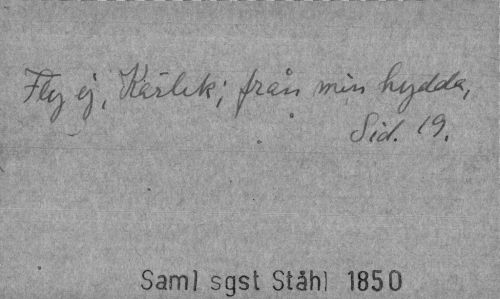 Fly ej, Kärlek; från min hydda,
Sid. 19.
Saml sgst Ståhl 1850